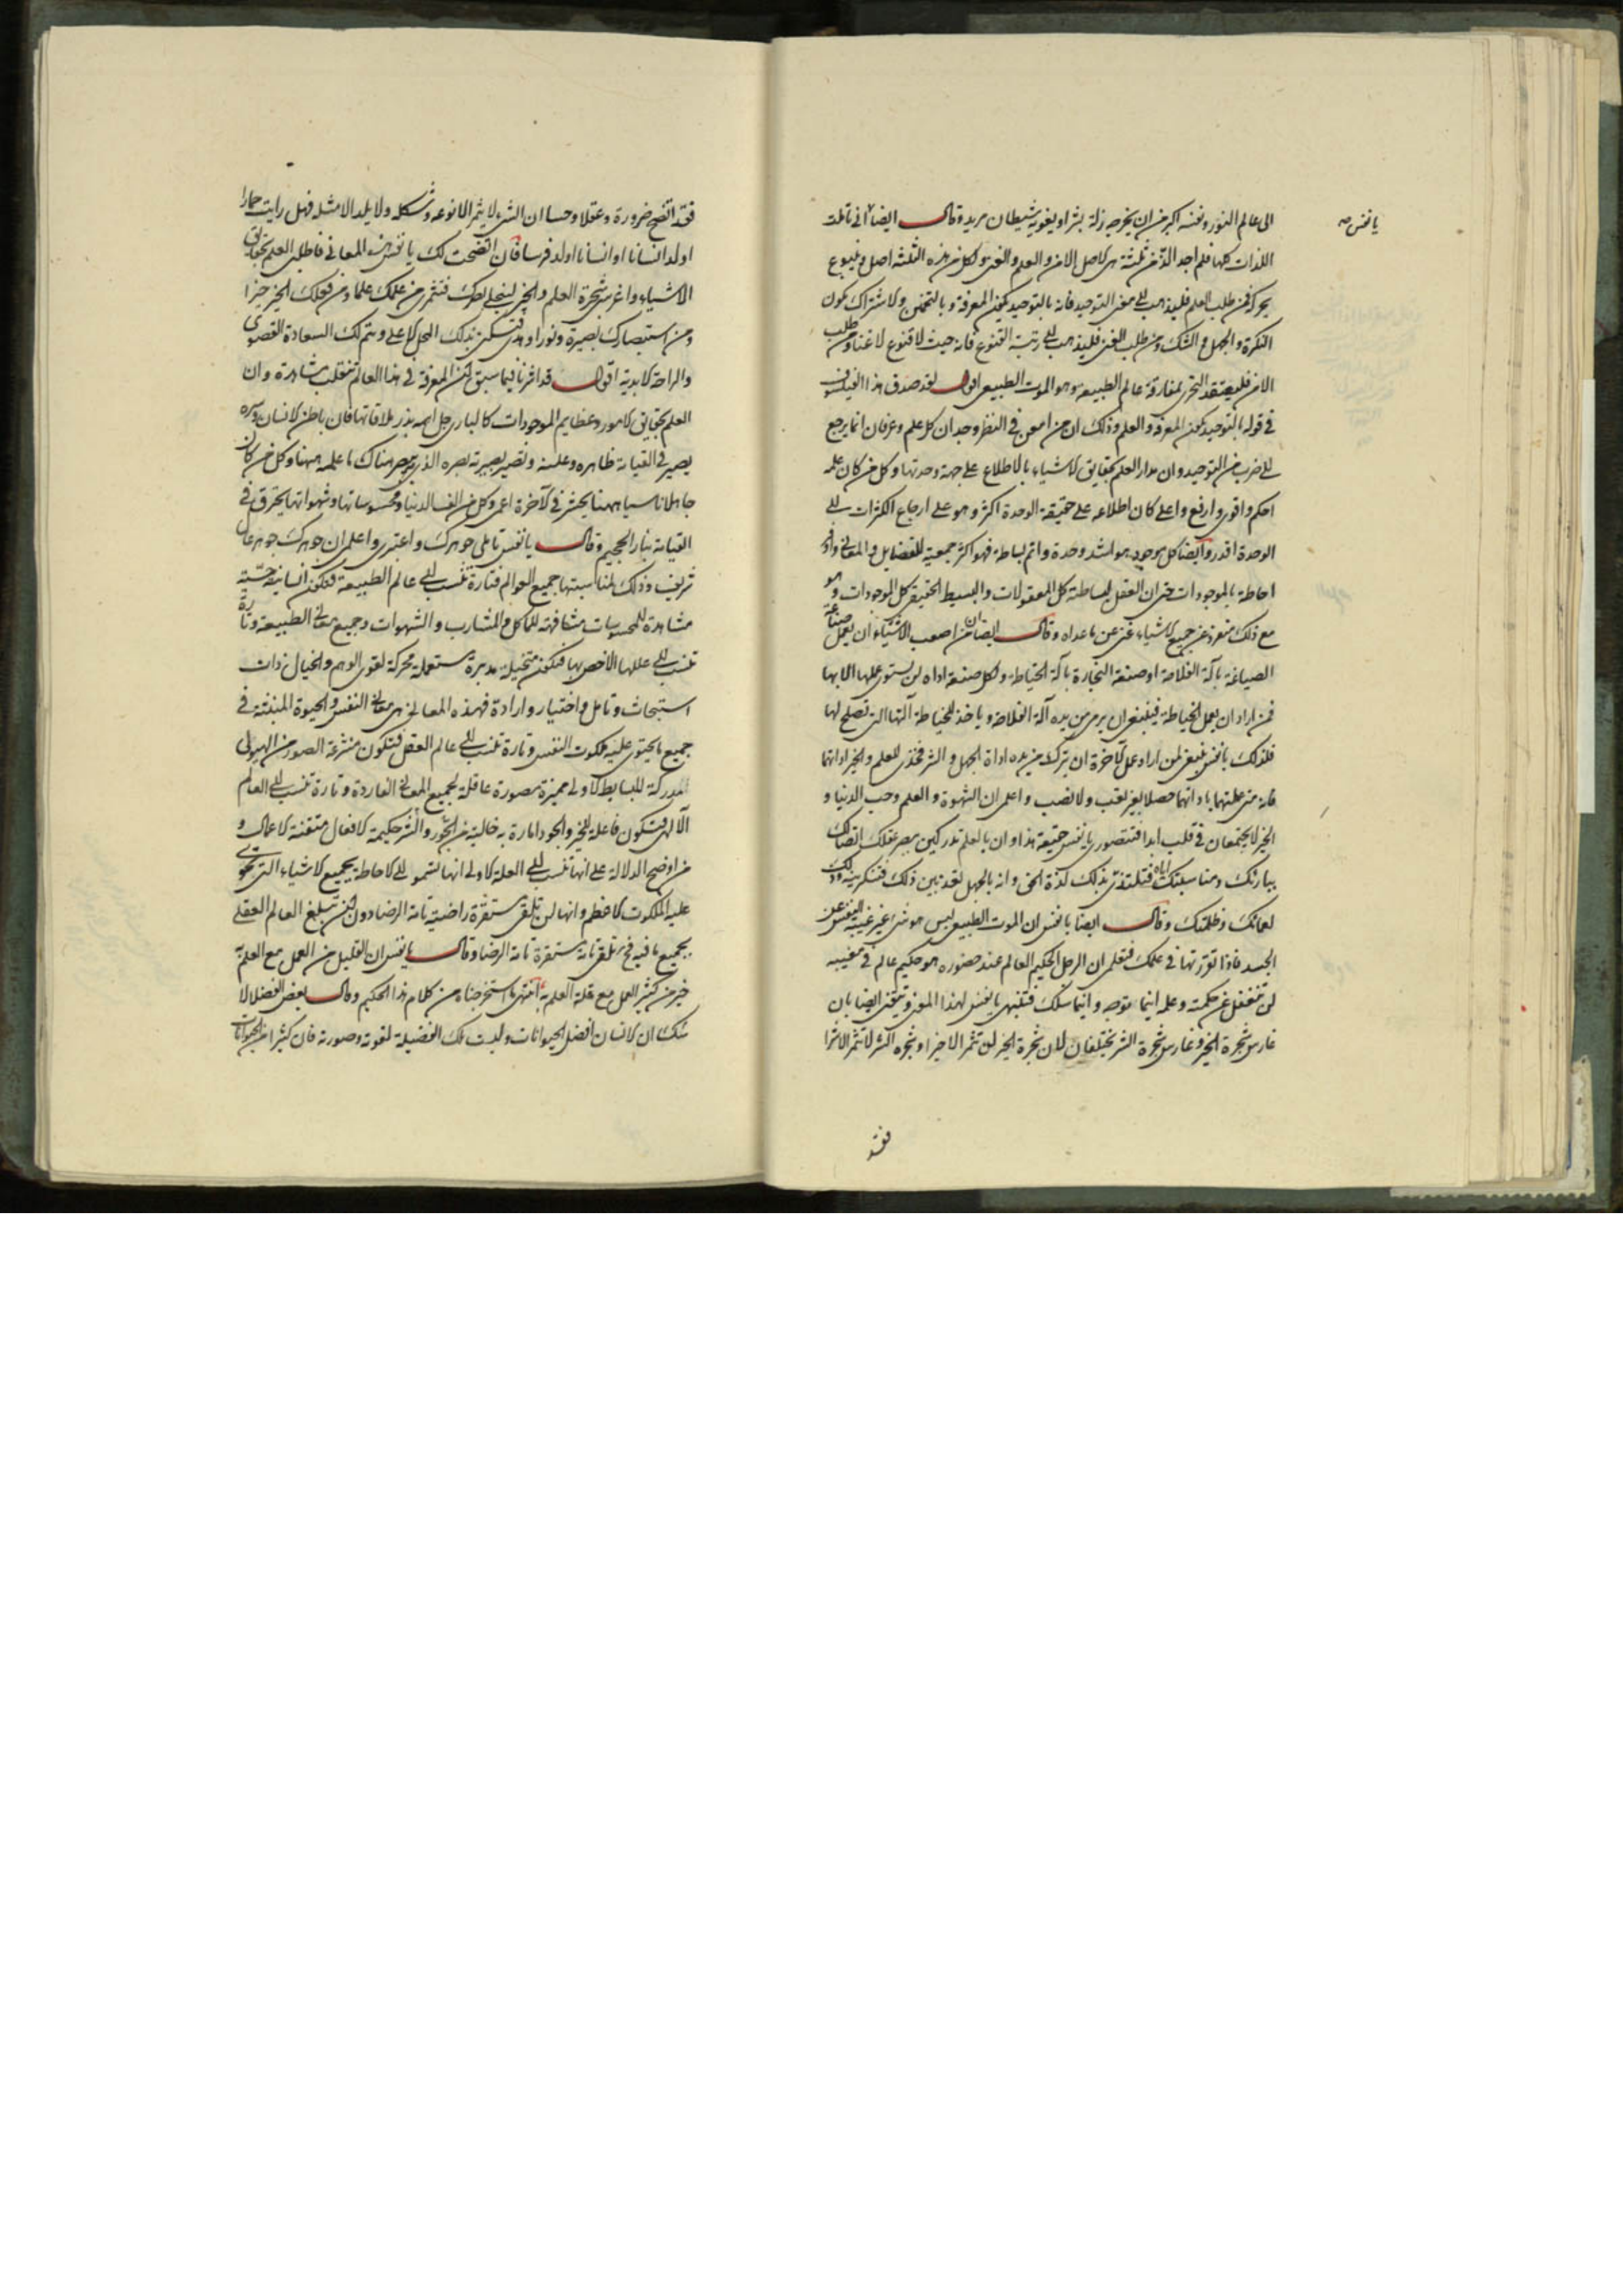 الى عالم النور ونفسه اكبر من ان يخرجه زلة بشر او يغويه شيطان مريد وقال ايضا انى تاملت
يا نفس صه
اللذات كلها فلم اجد الذ من ثلثة هى لاصل الامن والعلم والغنى ولكل من هذه الثلثة اصل وينبوع
يحركه فمن طلب العلم فليذهب الى معنى التوحيد فانه بالتوحيد يكون المعرفة وبالتخمين ولاشتراك يكون
النكرة والجهل والشك ومن طلب الغنى فليذهب الى رتبة القنوع فانه حيث لا قنوع لا غنا ومن طلب
الامن فليعتقد التحرى بمفارقة عالم الطبيعه وهو الموت الطبيعى اقول لقد صدق هذا الفيلسوف
فى قوله بالتوحيد يكون المعرفة والعلم وذلك ان من امعن فى النظر وجد ان كل علم وعرفان انما يرجع
الى ضرب من التوحيد وان مدار العلم بحقايق لاشياء بالاطلاع على جهة وحدتها وكل من كان علمه
احكم واقوى وارفع واعلى كان اطلاعه على حقيقة الوحدة اكثر وهو على ارجاع الكثرات الى
الوحدة اقدر وايضا كل موجود هو اشد وحدة واتم بساطة فهو اكثر جمعية للفضايل والمعانى واوفر
احاطة بالموجودات حتى ان العقل لبساطته كل المعقولات والبسيط الحقيقى كل الموجودات وهو
مع ذلك منفرد عن جميع لاشياء غنى عن ما عداه وقال ايضا ان من اصعب الاشياء ان يعمل صناعة
الصياغة بآلة الفلاحة او صنعة النجارة بآلة الخياطة ولكل صنعة اداه لن يستوى عملها الا بها
فمن اراد ان يعمل الخياطة فينبغى ان يرمى من يده آلة الفلاحة وياخذ للخياطة آلتها التى تصلح لها
فلذلك يا نفس ينبغى لمن اراد عمل لآخرة ان يترك من يده اداة الجهل والشر فخذى للعلم والخير اداتهما
فانه متى عملتهما باداتهما حصلا بغير تعب ولا نصب واعلم ان الشهوة والعلم وحب الدنيا و
الخير لا يجتمعان فى قلب ابدا فتصورى يا نفس حقيقة هذا وان بالعلم تدركين ببصر عقلك اتصالك
بباريك ومناسبتك اياه فتلتذى بذلك لذة الحق وانه بالجهل تفقدين ذلك فتنكرينه وذلك
لعمائك وظلمتك وقال ايضا يا نفس ان الموت الطبيعى ليس هو شئ غير غيبة النفس عن
الجسد فاذا تقررتها فى علمك فتعلمى ان الرجل الحكيم العالم عند حضوره هو حكيم عالم فى مغيبه
لن تنفصل عن حكمته وعلمه اينما توجه واينما سلك فتنبهى يا نفس لهذا المعنى وتيقنى ايضا بان
غارس شجرة الخير وغارس شجرة الشر يختلفان لان شجرة الخير لن تثمر الا خيرا وشجره الشر لا تثمر الا شرا
فقد
فقد اتضح ضرورة وعقلا وحسا ان الشئ لا يثمر الا نوعه وشكله ولا يلد الا مثله فهل رايت حمارا
اولد انسانا او انسانا اولد فرسا فان اتضحت لك يا نفس هذه المعانى فاطلبى العلم بحقايق
الاشياء واغرسى شجرة العلم والخير لينجلى بصرك فتثمرى من علمك علما ومن فعلك الخير خيرا
ومن استبصارك بصيرة ونورا وهدى فتسكنى بذلك المحل لاعلى ويتم لك السعادة القصوى
والراحة لابدية اقول قد اشرنا فيما سبق لكن المعرفة فى هذا العالم تنقلب مشاهدة وان
العلم بحقايق لامور وعظايم الموجودات كالبارى جل اسمه بذر ملاقاتها فان باطن لانسان وسره
يصير فى القيامة ظاهره وعلنه وتصير بصيرته بصره الذى يبصر هناك ما علمه ههنا وكل من كان
جاهلا ناسيا ههنا يحشر فى لآخرة اعمى وكل من الف الدنيا ومحسوساتها وشهواتها يحترق فى
القيامة بنار الجحيم وقال يا نفس تاملى جوهرك واعتبرى واعلمى ان جوهرك جوهر عال
شريف وذلك لمناسبتها جميع العوالم فتارة تنسب الى عالم الطبيعة فتكون انسانية حسية
مشاهدة للمحسوسات مشافهة للماكل والمشارب والشهوات وجميع معانى الطبيعة وتارة
تنسب الى عللها الاخص بها فتكون متخيلة مدبرة مستعملة محركة لقوى الوهم والخيال ذات
استبحاث وتامل واختيار وارادة فهذه المعانى هى معانى النفس والحيوة المنبثة فى
جميع ما يحتوى عليه ملكوت النفس وتارة تنسب الى عالم العقل فتكون منتزعة الصور من الهيولى
المدركة للبسايط لاولى مميزة مصورة عاقلة لجميع المعانى الفاردة وتارة تنسب الى العالم
الالهى فتكون فاعلة للخير والجود امارة به خالية من الجور والشر حكيمة لافعال متقنة لاعمال و
من اوضح الدلالة على انها تنسب الى العلة لاولى انها تسمو الى لاحاطة بجميع لاشياء التى يحتوى
عليه الملكوت لاعظم وانها لن تلقى مستقرة راضية تامة الرضا دون ان تبلغ العالم العقلى
بجميع ما فيه فح تلقى تامة مستقرة تامة الرضا وقال يا نفس ان القليل من العمل مع العلم به
خير من كثير العمل مع قلة العلم به انتهى ما استخرجناه من كلام هذا الحكيم وقال بعض الفضلا لا
شك ان لانسان افضل الحيوانات وليست تلك الفضيلة لقوته وصورته فان كثيرا من الحيوانات